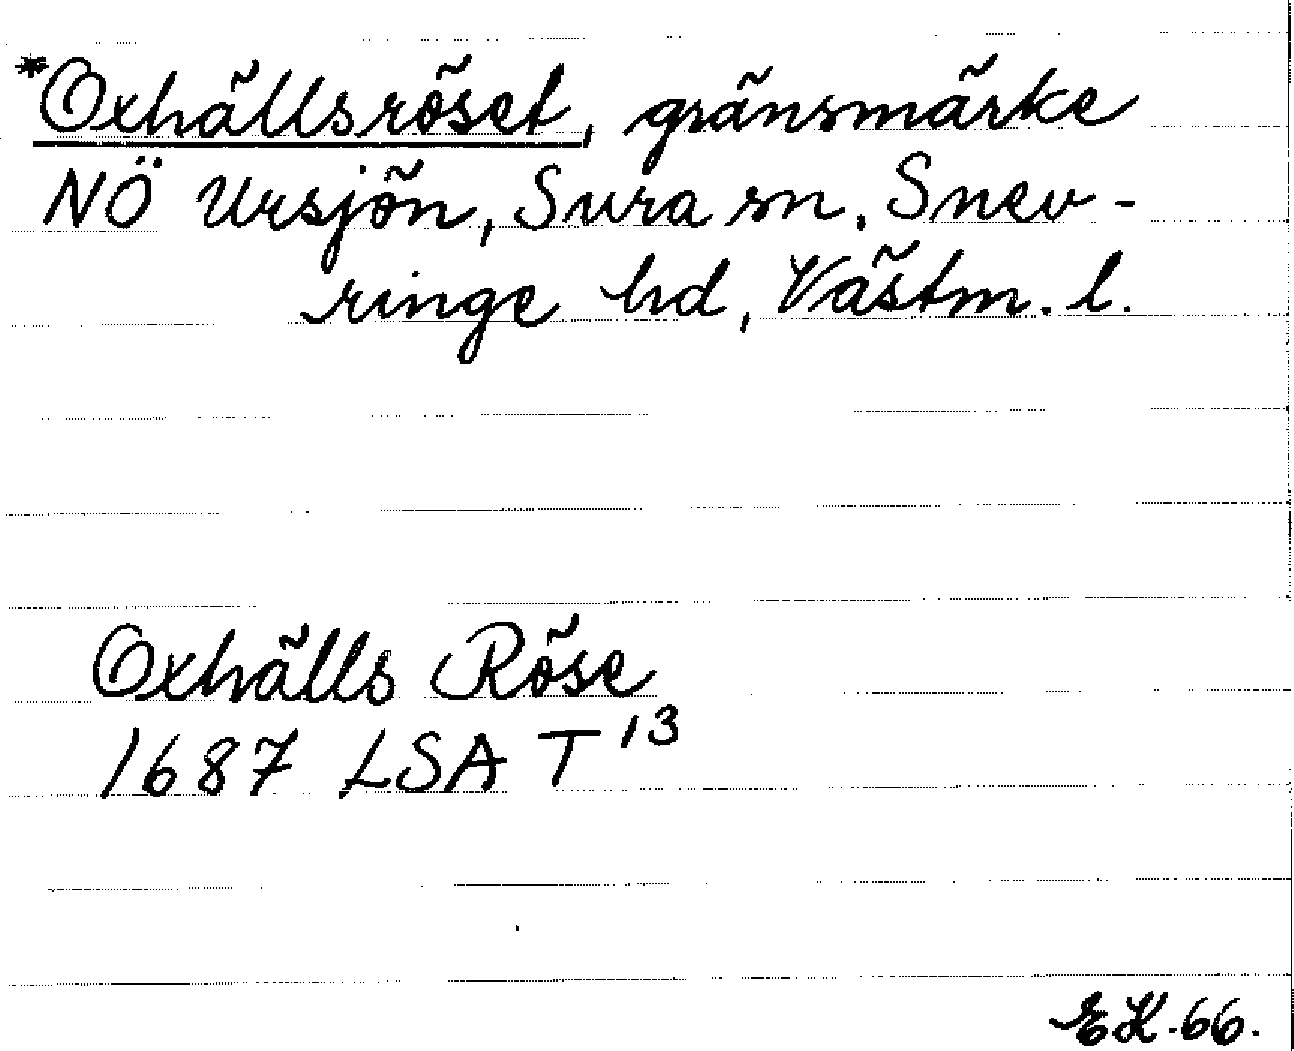 *Oxhällsröset, gränsmärke
NÖ Ursjön, Sura sn, Snev-
ringe hd, Västm. l.
Oxhälls Röse
1687 LSA T 13
EK. 66.